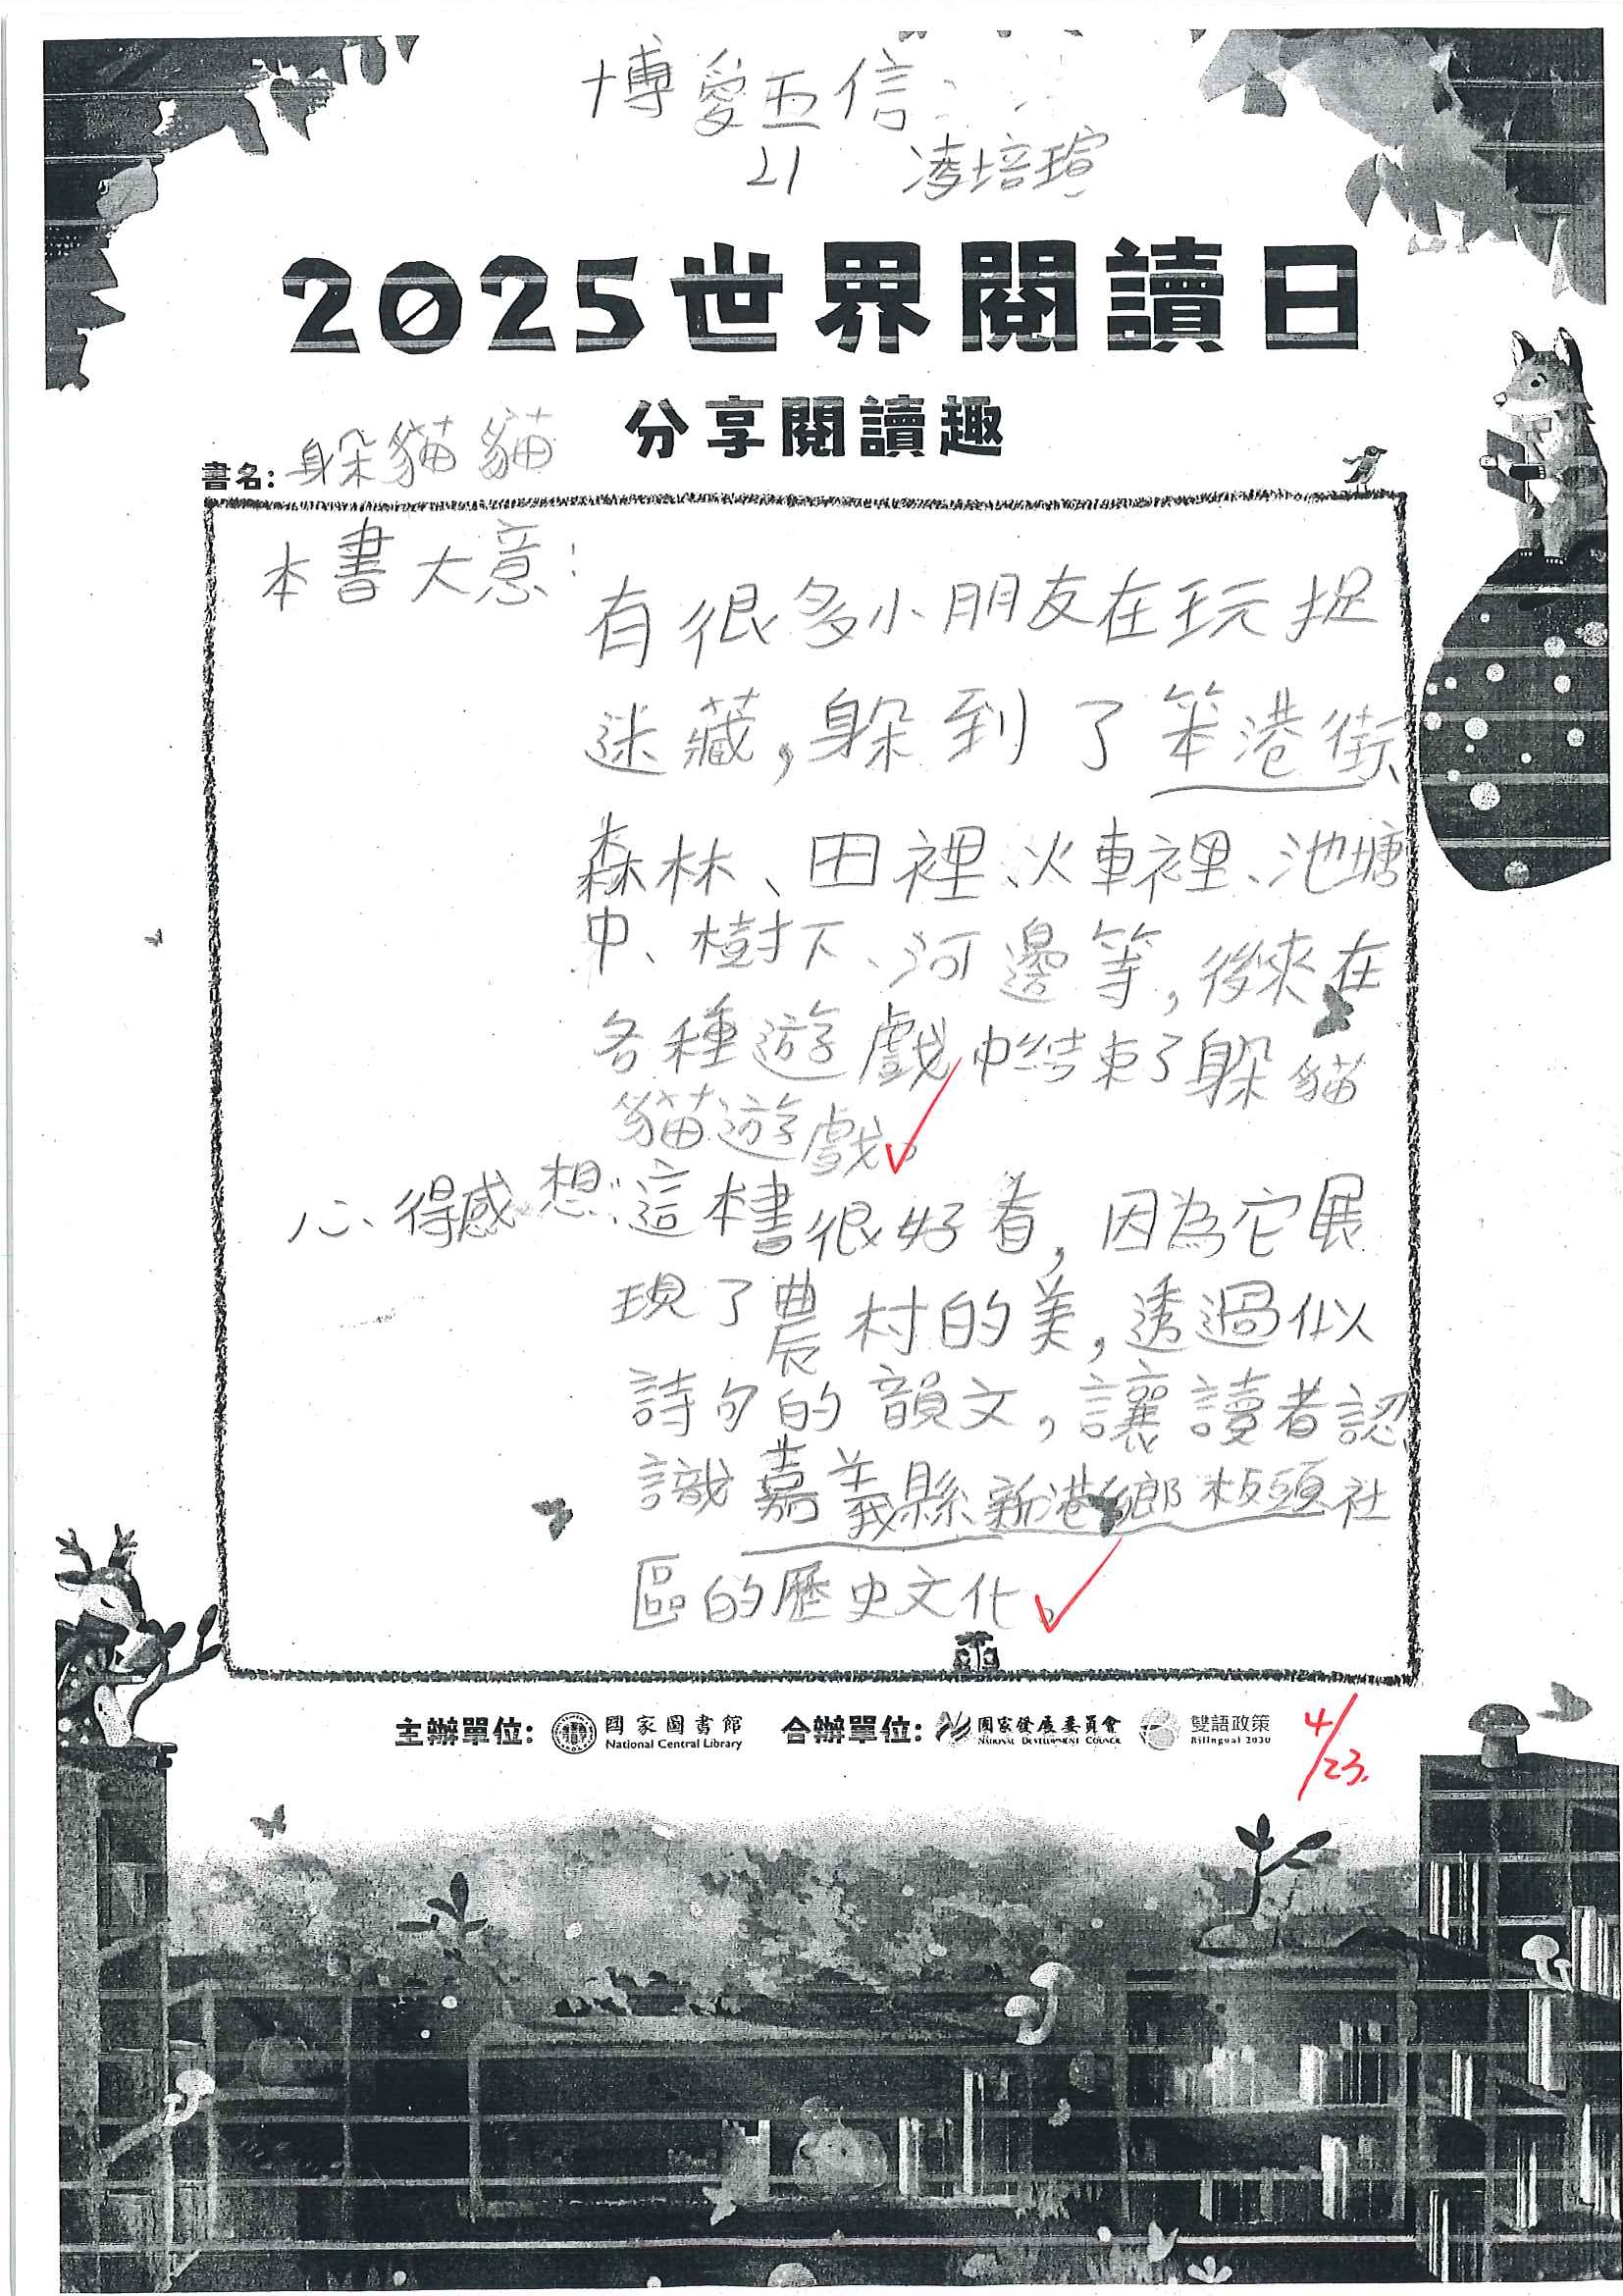 博愛五信
21 凌培瑄
2025世界閱讀日
分享閱讀趣
書名: 躲貓貓
本書大意:
有很多小朋友在玩捉
迷藏,躲到了笨港街、
森林、田裡、火車裡、池塘
中、樹下、河邊等,後來在
各種遊戲中結束了躲貓
貓遊戲。
心得感想:這本書很好看,因為它展
現了農村的美,透過似
詩句的韻文,讓讀者認
識嘉義縣新港鄉板頭社
區的歷史文化。
主辦單位: 國家圖書館 合辦單位: 國家發展委員會 雙語政策
National Central Library NATIONAL DEVELOPMENT COUNCIL Bilingual 2030
4/23.